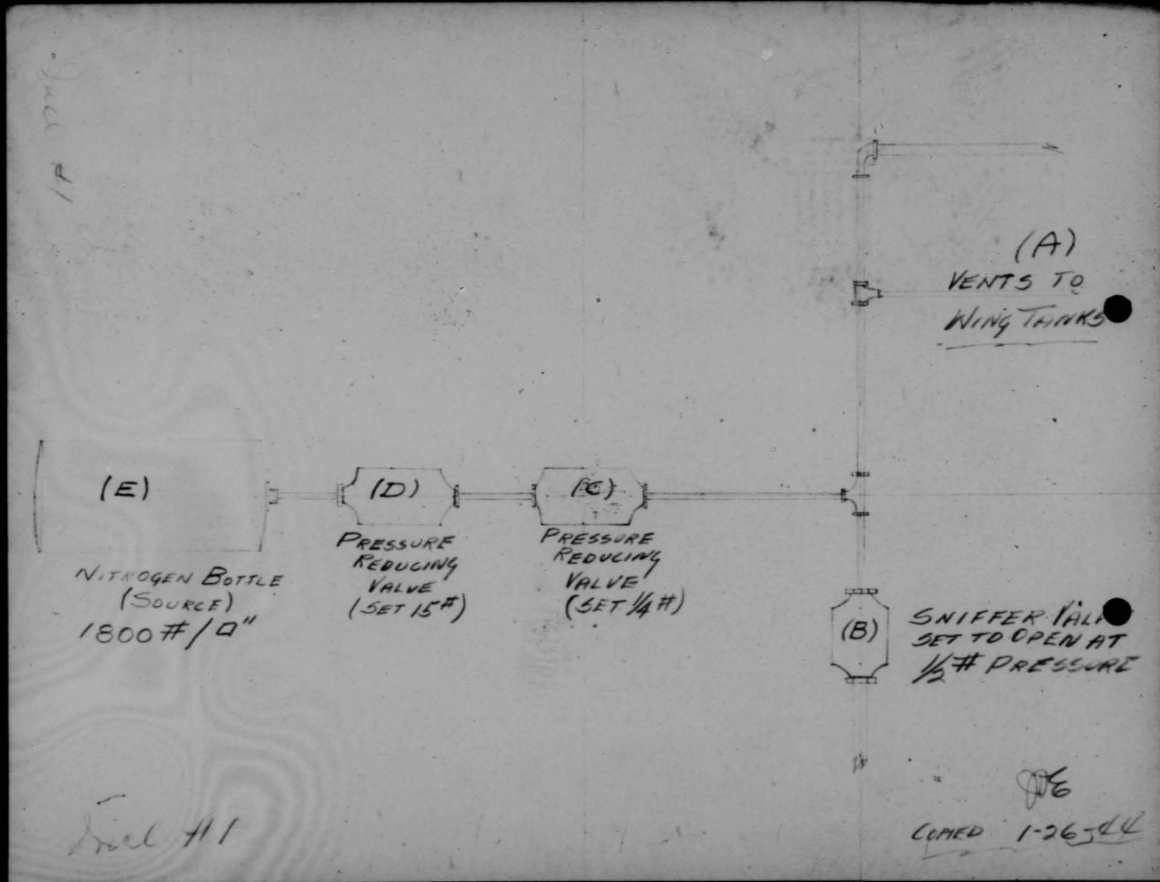 (A)
VENTS TO
WING TANKS
(E)
(D)
(C)
NITROGEN BOTTLE
(SOURCE)
1800 #/□"
PRESSURE
REDUCING
VALVE
(SET 15#)
PRESSURE
REDUCING
VALVE
(SET 1/4 #)
(B)
SNIFFER VAL
SET TO OPEN AT
1/2 # PRESSURE
COPIED 1-26-44
#1